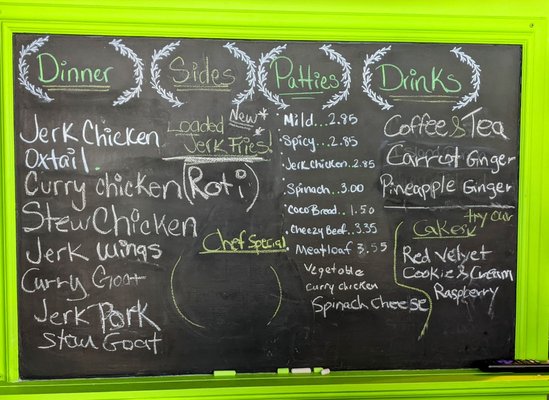 Dinner
Jerk Chicken
Oxtail
Curry chicken (Roti)
Stew Chicken
Jerk wings
Curry Goat
Jerk Pork
Stew Goat
Sides
New*
Loaded
Jerk Fries
Chef Special
Patties
Mild... 2.85
Spicy... 2.85
Jerk Chicken. 2.85
Spinach.. 3.00
Coco Bread.. 1.50
Cheezy Beef.. 3.35
Meatloaf 3.55
Vegetable
Curry chicken
Spinach Cheese
Drinks
Coffee & Tea
Carrot Ginger
Pineapple Ginger
try our
Cakes
Red Velvet
Cookie & Cream
Raspberry